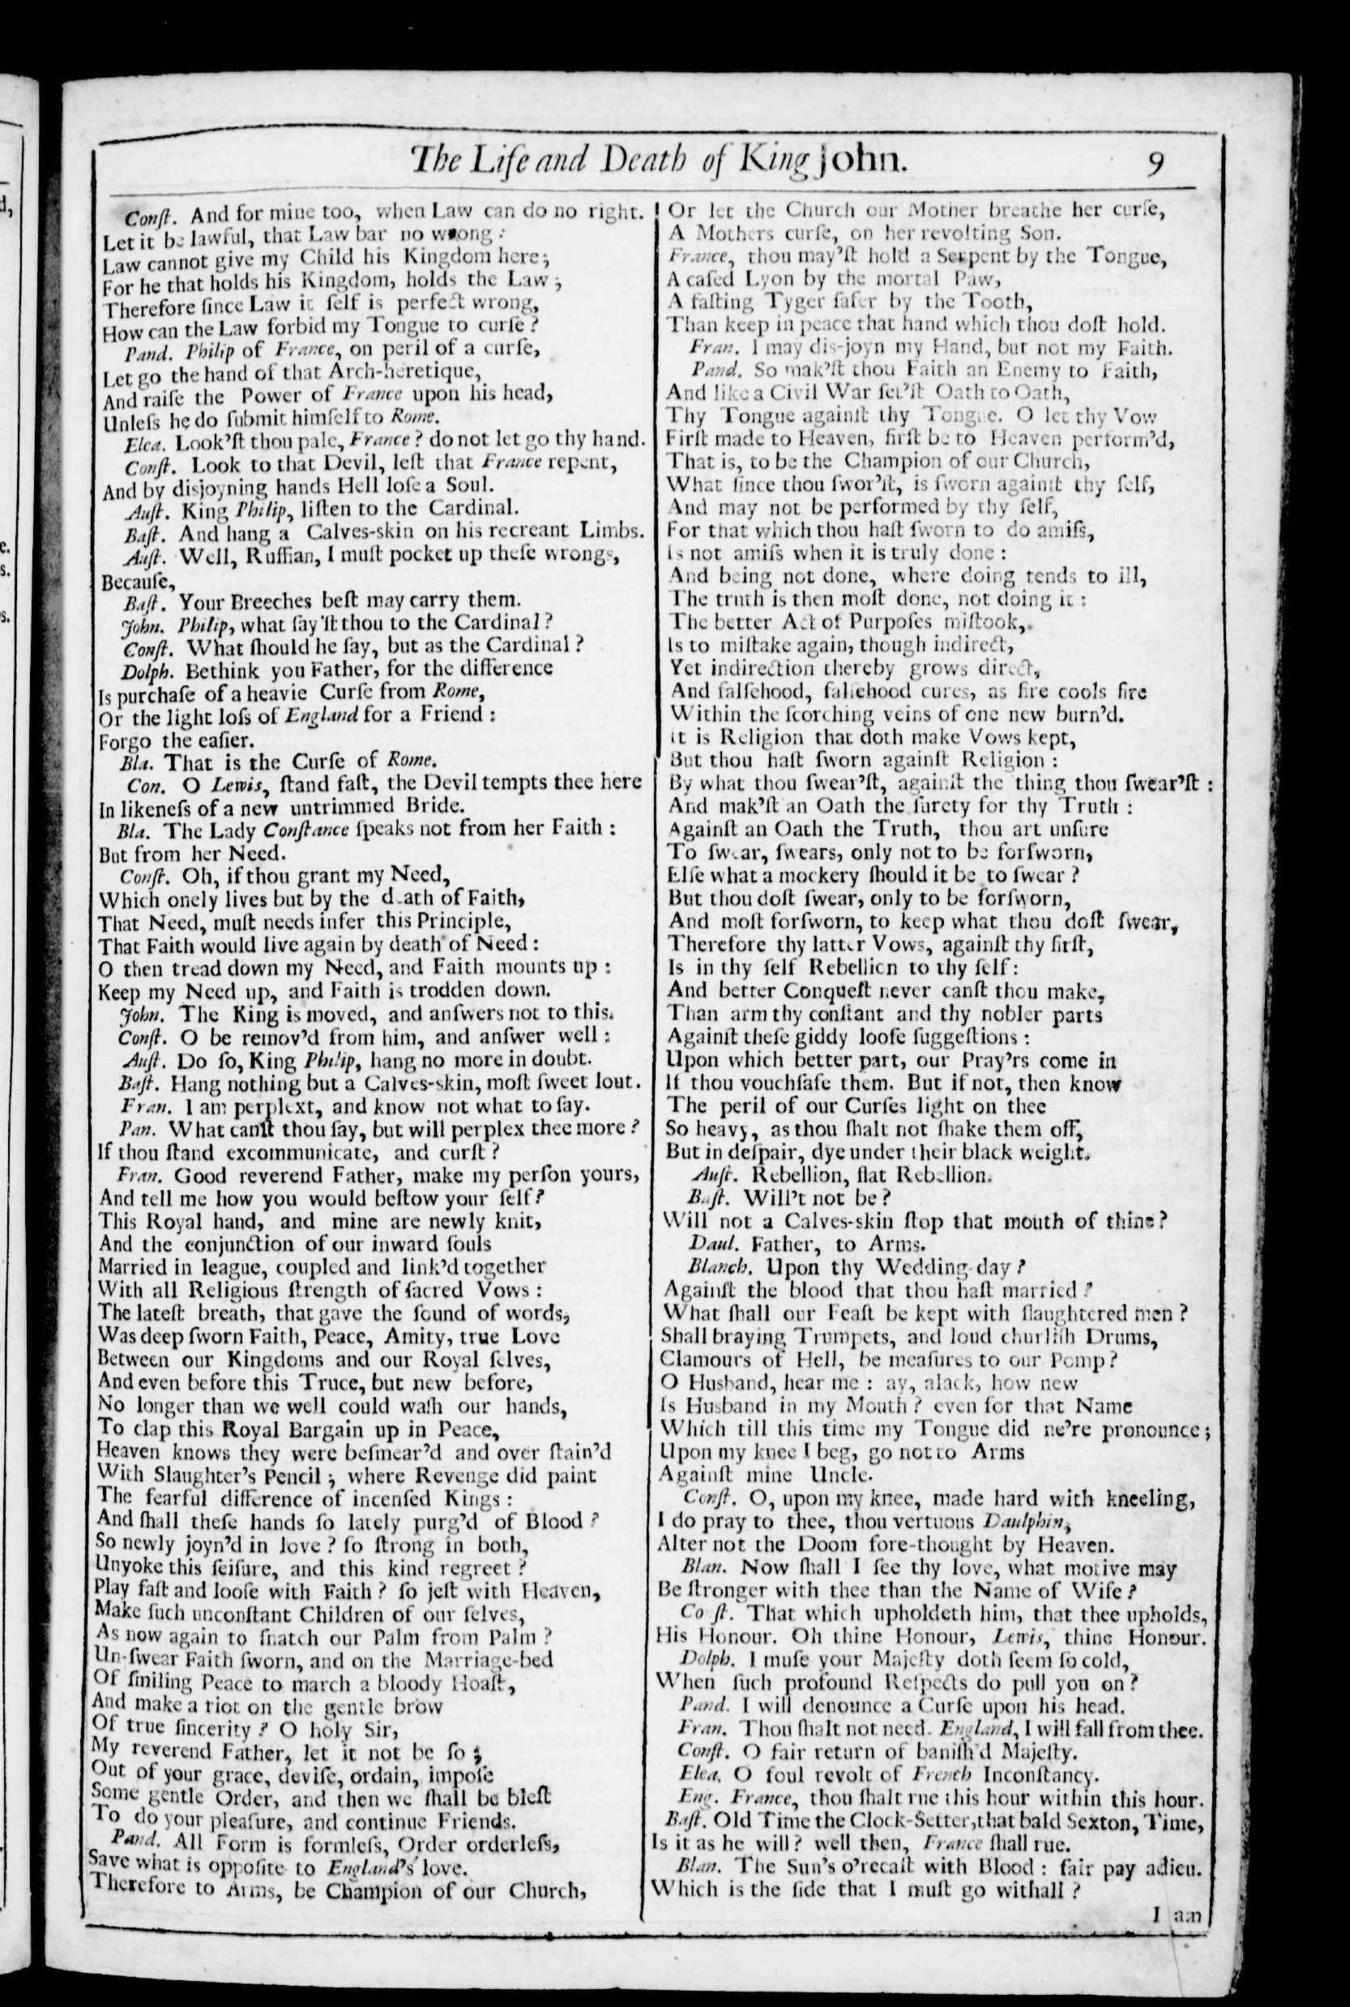 The Life and Death of King John. 9
Conſt. And for mine too, when Law can do no right.
Let it be lawful, that Law bar no wrong:
Law cannot give my Child his Kingdom here;
For he that holds his Kingdom, holds the Law;
Therefore ſince Law it ſelf is perfect wrong,
How can the Law forbid my Tongue to curſe?
Pand. Philip of France, on peril of a curſe,
Let go the hand of that Arch-heretique,
And raiſe the Power of France upon his head,
Unleſs he do ſubmit himſelf to Rome.
Elea. Look'ſt thou pale, France? do not let go thy hand.
Conſt. Look to that Devil, leſt that France repent,
And by disjoyning hands Hell loſe a Soul.
Auſt. King Philip, liſten to the Cardinal.
Baſt. And hang a Calves-skin on his recreant Limbs.
Auſt. Well, Ruffian, I muſt pocket up theſe wrongs,
Becauſe,
Baſt. Your Breeches beſt may carry them.
John. Philip, what ſay'ſt thou to the Cardinal?
Conſt. What ſhould he ſay, but as the Cardinal?
Dolph. Bethink you Father, for the difference
Is purchaſe of a heavie Curſe from Rome,
Or the light loſs of England for a Friend:
Forgo the eaſier.
Bla. That is the Curſe of Rome.
Con. O Lewis, ſtand faſt, the Devil tempts thee here
In likeneſs of a new untrimmed Bride.
Bla. The Lady Conſtance ſpeaks not from her Faith:
But from her Need.
Conſt. Oh, if thou grant my Need,
Which onely lives but by the death of Faith,
That Need, muſt needs infer this Principle,
That Faith would live again by death of Need:
O then tread down my Need, and Faith mounts up:
Keep my Need up, and Faith is trodden down.
John. The King is moved, and anſwers not to this.
Conſt. O be remov'd from him, and anſwer well:
Auſt. Do ſo, King Philip, hang no more in doubt.
Baſt. Hang nothing but a Calves-skin, moſt ſweet lout.
Fran. I am perplext, and know not what to ſay.
Pan. What canſt thou ſay, but will perplex thee more?
If thou ſtand excommunicate, and curſt?
Fran. Good reverend Father, make my perſon yours,
And tell me how you would beſtow your ſelf?
This Royal hand, and mine are newly knit,
And the conjunction of our inward ſouls
Married in league, coupled and link'd together
With all Religious ſtrength of ſacred Vows:
The lateſt breath, that gave the ſound of words,
Was deep ſworn Faith, Peace, Amity, true Love
Between our Kingdoms and our Royal ſelves,
And even before this Truce, but new before,
No longer than we well could waſh our hands,
To clap this Royal Bargain up in Peace,
Heaven knows they were beſmear'd and over ſtain'd
With Slaughter's Pencil; where Revenge did paint
The fearful difference of incenſed Kings:
And ſhall theſe hands ſo lately purg'd of Blood?
So newly joyn'd in love? ſo ſtrong in both,
Unyoke this ſeiſure, and this kind regreet?
Play faſt and looſe with Faith? ſo jeſt with Heaven,
Make ſuch unconſtant Children of our ſelves,
As now again to ſnatch our Palm from Palm?
Un-ſwear Faith ſworn, and on the Marriage-bed
Of ſmiling Peace to march a bloody Hoaſt,
And make a riot on the gentle brow
Of true ſincerity? O holy Sir,
My reverend Father, let it not be ſo;
Out of your grace, deviſe, ordain, impoſe
Some gentle Order, and then we ſhall be bleſt
To do your pleaſure, and continue Friends.
Pand. All Form is formleſs, Order orderleſs,
Save what is oppoſite to England's love.
Therefore to Arms, be Champion of our Church,
Or let the Church our Mother breathe her curſe,
A Mothers curſe, on her revolting Son.
France, thou may'ſt hold a Serpent by the Tongue,
A caſed Lyon by the mortal Paw,
A faſting Tyger ſafer by the Tooth,
Than keep in peace that hand which thou doſt hold.
Fran. I may dis-joyn my Hand, but not my Faith.
Pand. So mak'ſt thou Faith an Enemy to Faith,
And like a Civil War ſet'ſt Oath to Oath,
Thy Tongue againſt thy Tongue. O let thy Vow
Firſt made to Heaven, firſt be to Heaven perform'd,
That is, to be the Champion of our Church,
What ſince thou ſwor'ſt, is ſworn againſt thy ſelf,
And may not be performed by thy ſelf,
For that which thou haſt ſworn to do amiſs,
Is not amiſs when it is truly done:
And being not done, where doing tends to ill,
The truth is then moſt done, not doing it:
The better Act of Purpoſes miſtook,
Is to miſtake again, though indirect,
Yet indirection thereby grows direct,
And falſehood, falſehood cures, as fire cools fire
Within the ſcorching veins of one new burn'd.
It is Religion that doth make Vows kept,
But thou haſt ſworn againſt Religion:
By what thou ſwear'ſt, againſt the thing thou ſwear'ſt:
And mak'ſt an Oath the ſurety for thy Truth:
Againſt an Oath the Truth, thou art unſure
To ſwear, ſwears, only not to be forſworn,
Elſe what a mockery ſhould it be to ſwear?
But thou doſt ſwear, only to be forſworn,
And moſt forſworn, to keep what thou doſt ſwear,
Therefore thy latter Vows, againſt thy firſt,
Is in thy ſelf Rebellion to thy ſelf:
And better Conqueſt never canſt thou make,
Than arm thy conſtant and thy nobler parts
Againſt theſe giddy looſe ſuggeſtions:
Upon which better part, our Pray'rs come in
If thou vouchſafe them. But if not, then know
The peril of our Curſes light on thee
So heavy, as thou ſhalt not ſhake them off,
But in deſpair, dye under their black weight.
Auſt. Rebellion, flat Rebellion.
Baſt. Will't not be?
Will not a Calves-skin ſtop that mouth of thine?
Daul. Father, to Arms.
Blanch. Upon thy Wedding-day?
Againſt the blood that thou haſt married?
What ſhall our Feaſt be kept with ſlaughtered men?
Shall braying Trumpets, and loud churliſh Drums,
Clamours of Hell, be meaſures to our Pomp?
O Husband, hear me: ay, alack, how new
Is Husband in my Mouth? even for that Name
Which till this time my Tongue did ne're pronounce;
Upon my knee I beg, go not to Arms
Againſt mine Uncle.
Conſt. O, upon my knee, made hard with kneeling,
I do pray to thee, thou vertuous Daulphin,
Alter not the Doom fore-thought by Heaven.
Blan. Now ſhall I ſee thy love, what motive may
Be ſtronger with thee than the Name of Wife?
Co ſt. That which upholdeth him, that thee upholds,
His Honour. Oh thine Honour, Lewis, thine Honour.
Dolph. I muſe your Majeſty doth ſeem ſo cold,
When ſuch profound Reſpects do pull you on?
Pand. I will denounce a Curſe upon his head.
Fran. Thou ſhalt not need. England, I will fall from thee.
Conſt. O fair return of baniſh'd Majeſty.
Elea. O foul revolt of French Inconſtancy.
Eng. France, thou ſhalt rue this hour within this hour.
Baſt. Old Time the Clock-Setter, that bald Sexton, Time,
Is it as he will? well then, France ſhall rue.
Blan. The Sun's o'recaſt with Blood: fair pay adieu.
Which is the ſide that I muſt go withall?
I am